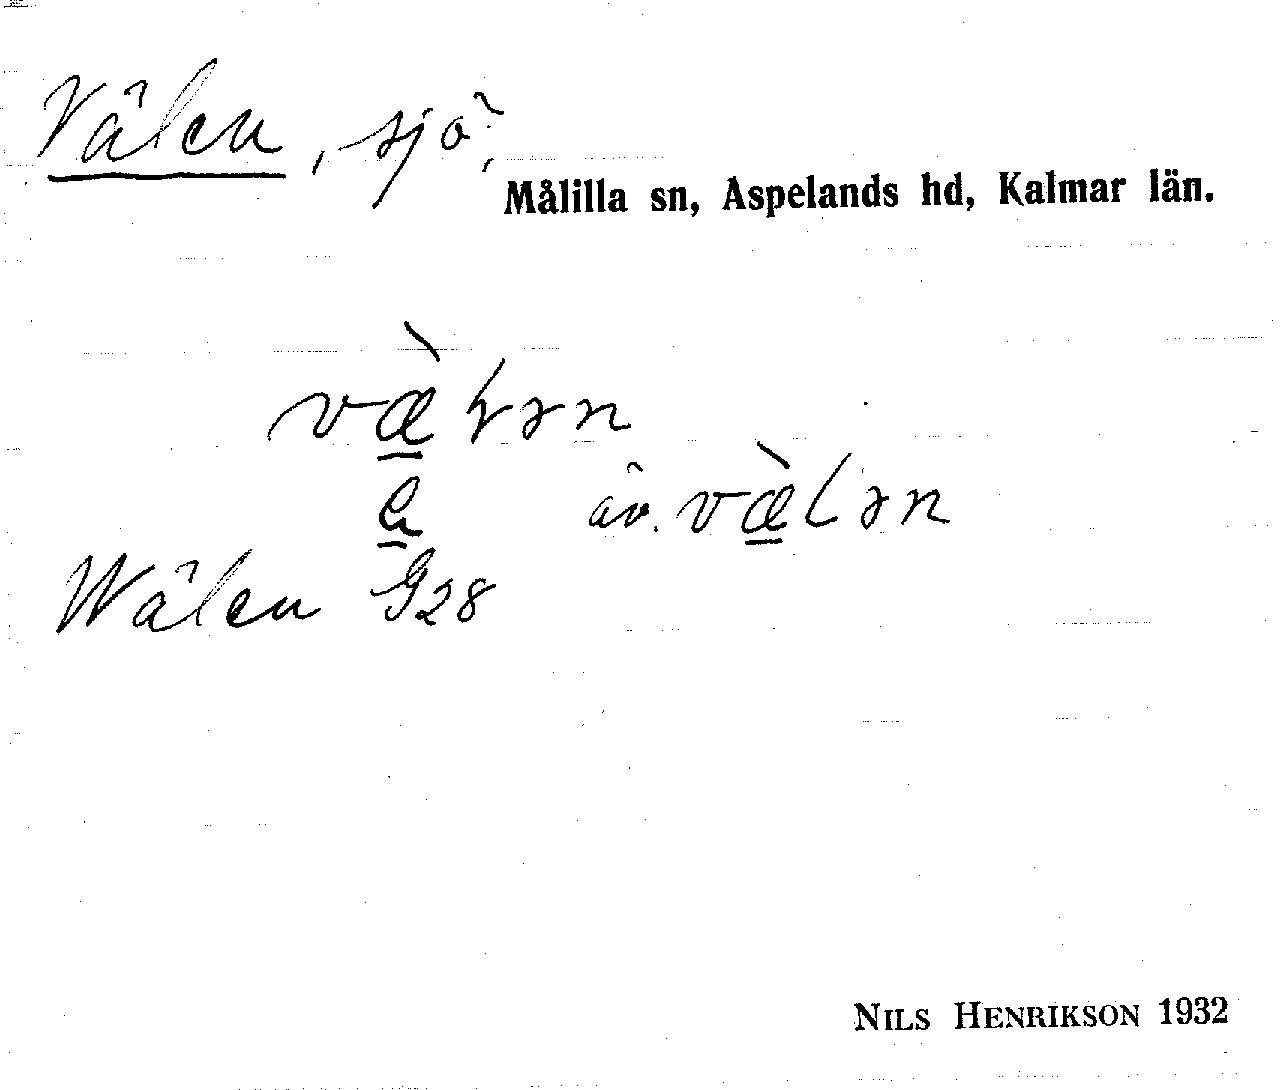 Välen, sjö,
Målilla sn, Aspelands hd, Kalmar län.
äv.
Wälen G28
NILS HENRIKSON 1932